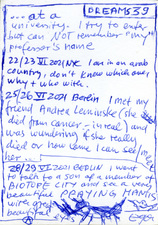 DREAMS 39
...at a
university. I try to
but can NOT remember "my"
professor's name
22/23 VI 2021 NYC I am in an arab
country, don't know which one,
why + who with.
25/26 VI 2021 Berlin I met my
friend Andrea (she
died from cancer - in real) and
was wondering if she really
died or how come I can see
her...
28/29 VI 2021 BERLIN I want
to talk to a son of a member of
BIOTOPE CITY and see a very
beautiful PRAYING MANTIS
with great
beautiful eyes